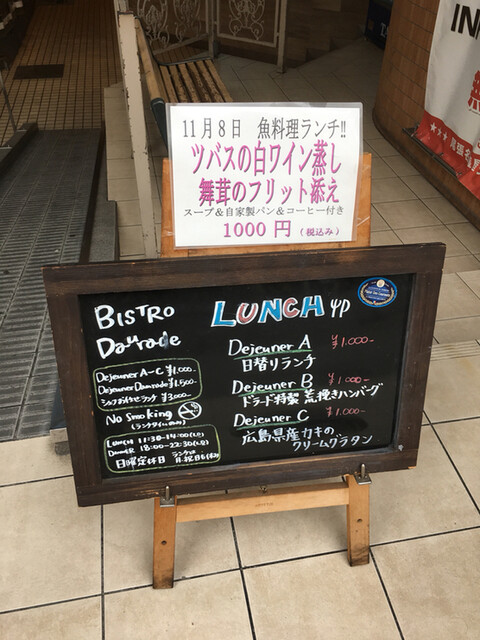 11月8日 魚料理ランチ!!
ツバスの白ワイン蒸し
舞茸のフリット添え
スープ＆自家製パン＆コーヒー付き
1000 円 (税込み)
BISTRO
Daurade
Dejeuner A-C ¥1,000-
Dejeuner Daurade ¥1,500-
シェフおまかせランチ ¥3,000-
No Smoking
(ランチタイムのみ)
LUNCH 11:30-14:00(L.O)
DINNER 18:00-22:30(L.O)
日曜定休日 ランチは
月.祝日も休み
LUNCH
Dejeuner A ¥1.000-
日替りランチ
Dejeuner B ¥1000-
ドラード特製 荒挽きハンバーグ
Dejeuner C ¥1.000-
広島県産カキの
クリームグラタン
IN